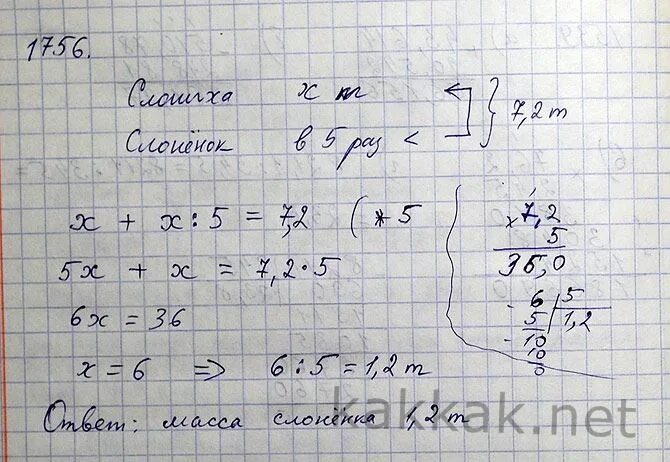 1756.
Слониха х кг
Слонёнок в 5 раз < } 7,2 т
х + х : 5 = 7,2 ( * 5
5х + х = 7,2 · 5
6х = 36
х = 6 => 6 : 5 = 1,2 т
Ответ: масса слонёнка 1,2 т
× 7,2
5
36,0
- 6 | 5
5 | 1,2
- 10
10
0
kakkak.net